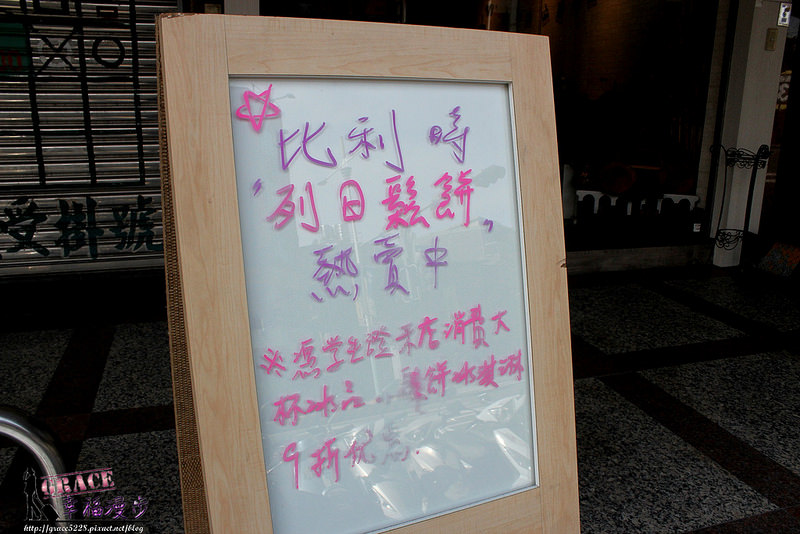 比利時
"列日鬆餅"
熱賣中
※憑學生證來店消費大
杯冰品、鬆餅冰淇淋
9折優惠.
受掛號
GRACE
幸福漫步
http://grace5228.pixnet.net/blog